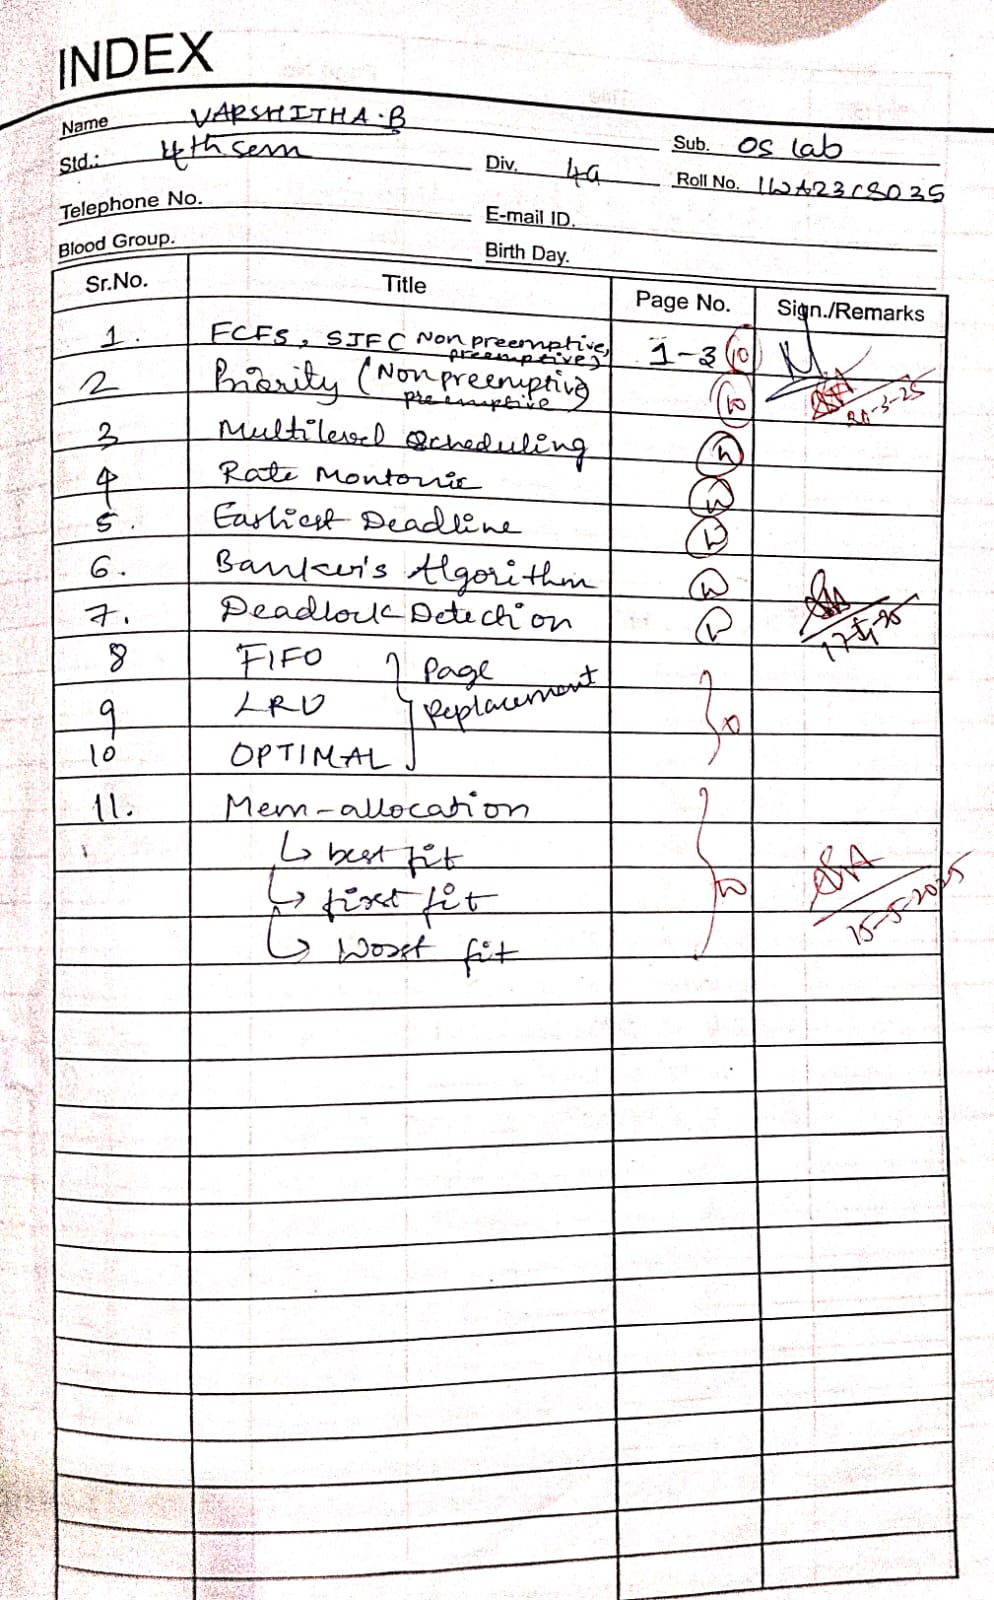 INDEX
Name VARSHITHA.B
Sub. OS lab
Std.: 4th sem Div. 4a Roll No. 1WA23CS035
Telephone No. E-mail ID.
Blood Group. Birth Day.
Sr.No. Title Page No. Sign./Remarks
1. FCFS, SJF( Non preemptive, 1-3 10
preemptive)
2 Priority (Non preemptive 10
preemptive) -3-25
3 Multilevel Scheduling
4 Rate Montonic
5. Earliest Deadline
6. Banker's Algorithm
7. Deadlock Detection
8 FIFO } Page
9 LRU Replacement
10 OPTIMAL
11. Mem-allocation
↳ best fit
↳ first fit
↳ Worst fit
15-5-2025